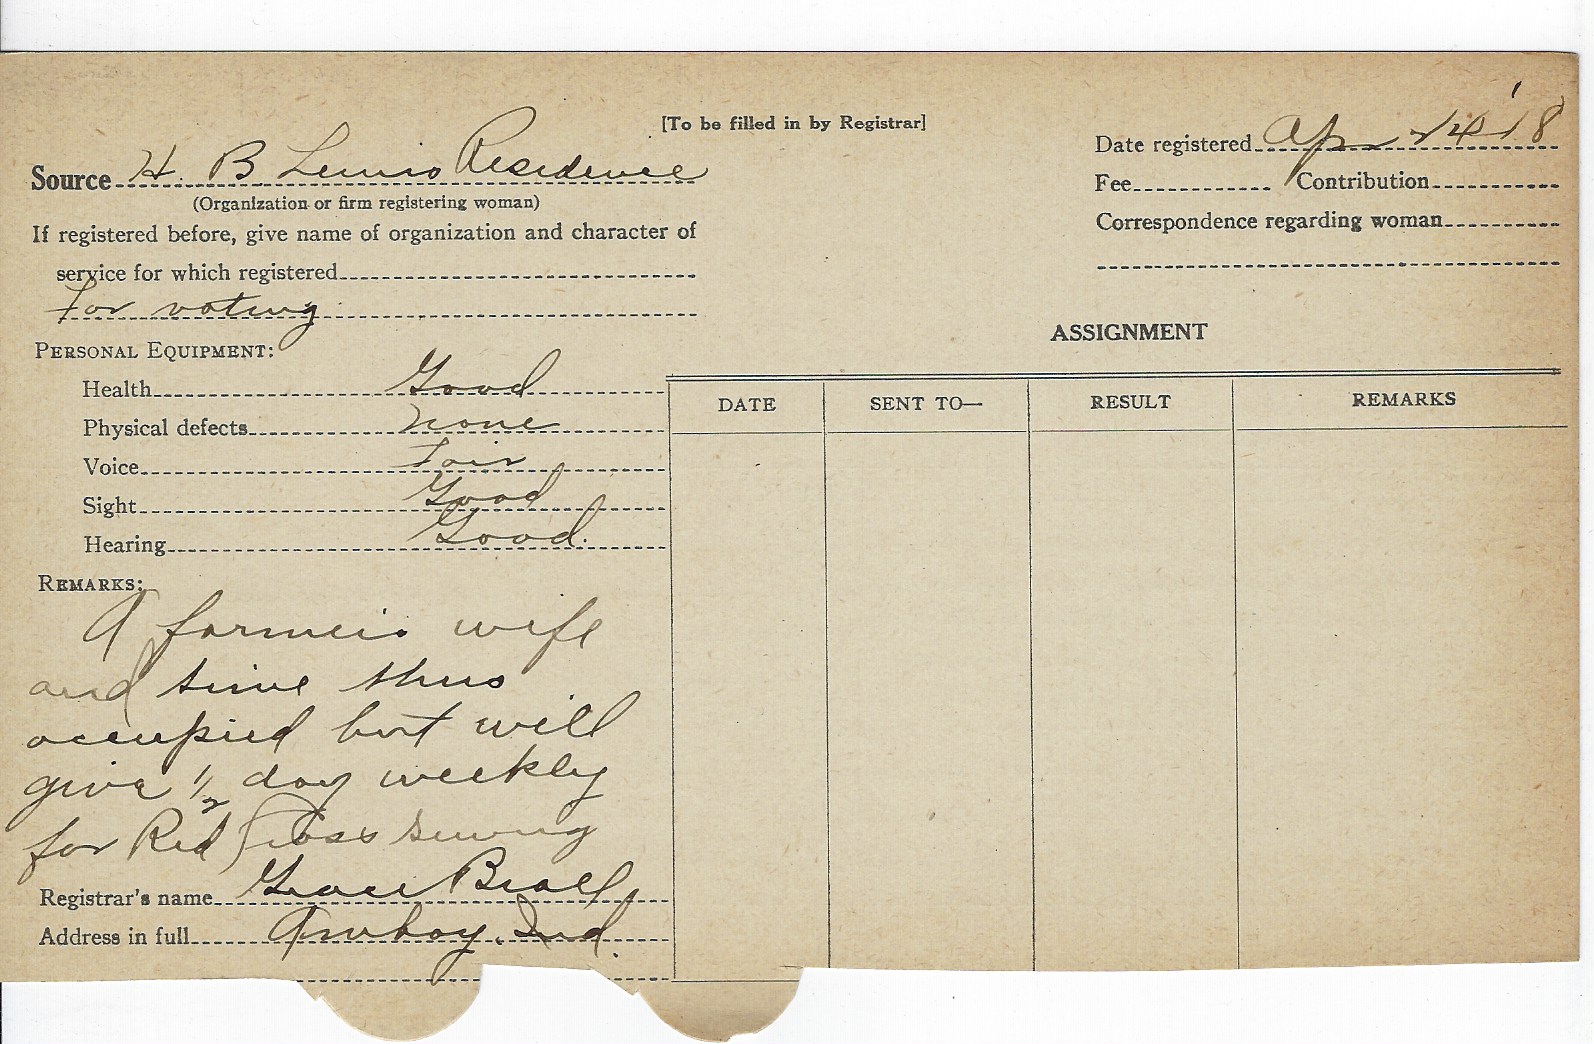 [To be filled in by Registrar]
Source H. B Lewis Residence
(Organization or firm registering woman)
If registered before, give name of organization and character of
service for which registered
For voting
PERSONAL EQUIPMENT:
Health Good
Physical defects none
Voice Fair
Sight Good
Hearing Good.
REMARKS:
A farmers wife
and time thus
occupied but will
give 1/2 day weekly
for Red Cross sewing
Registrar's name Grace Beall
Address in full Amboy, Ind.
Date registered Apr 14 '18
Fee Contribution
Correspondence regarding woman
ASSIGNMENT
DATE SENT TO— RESULT REMARKS